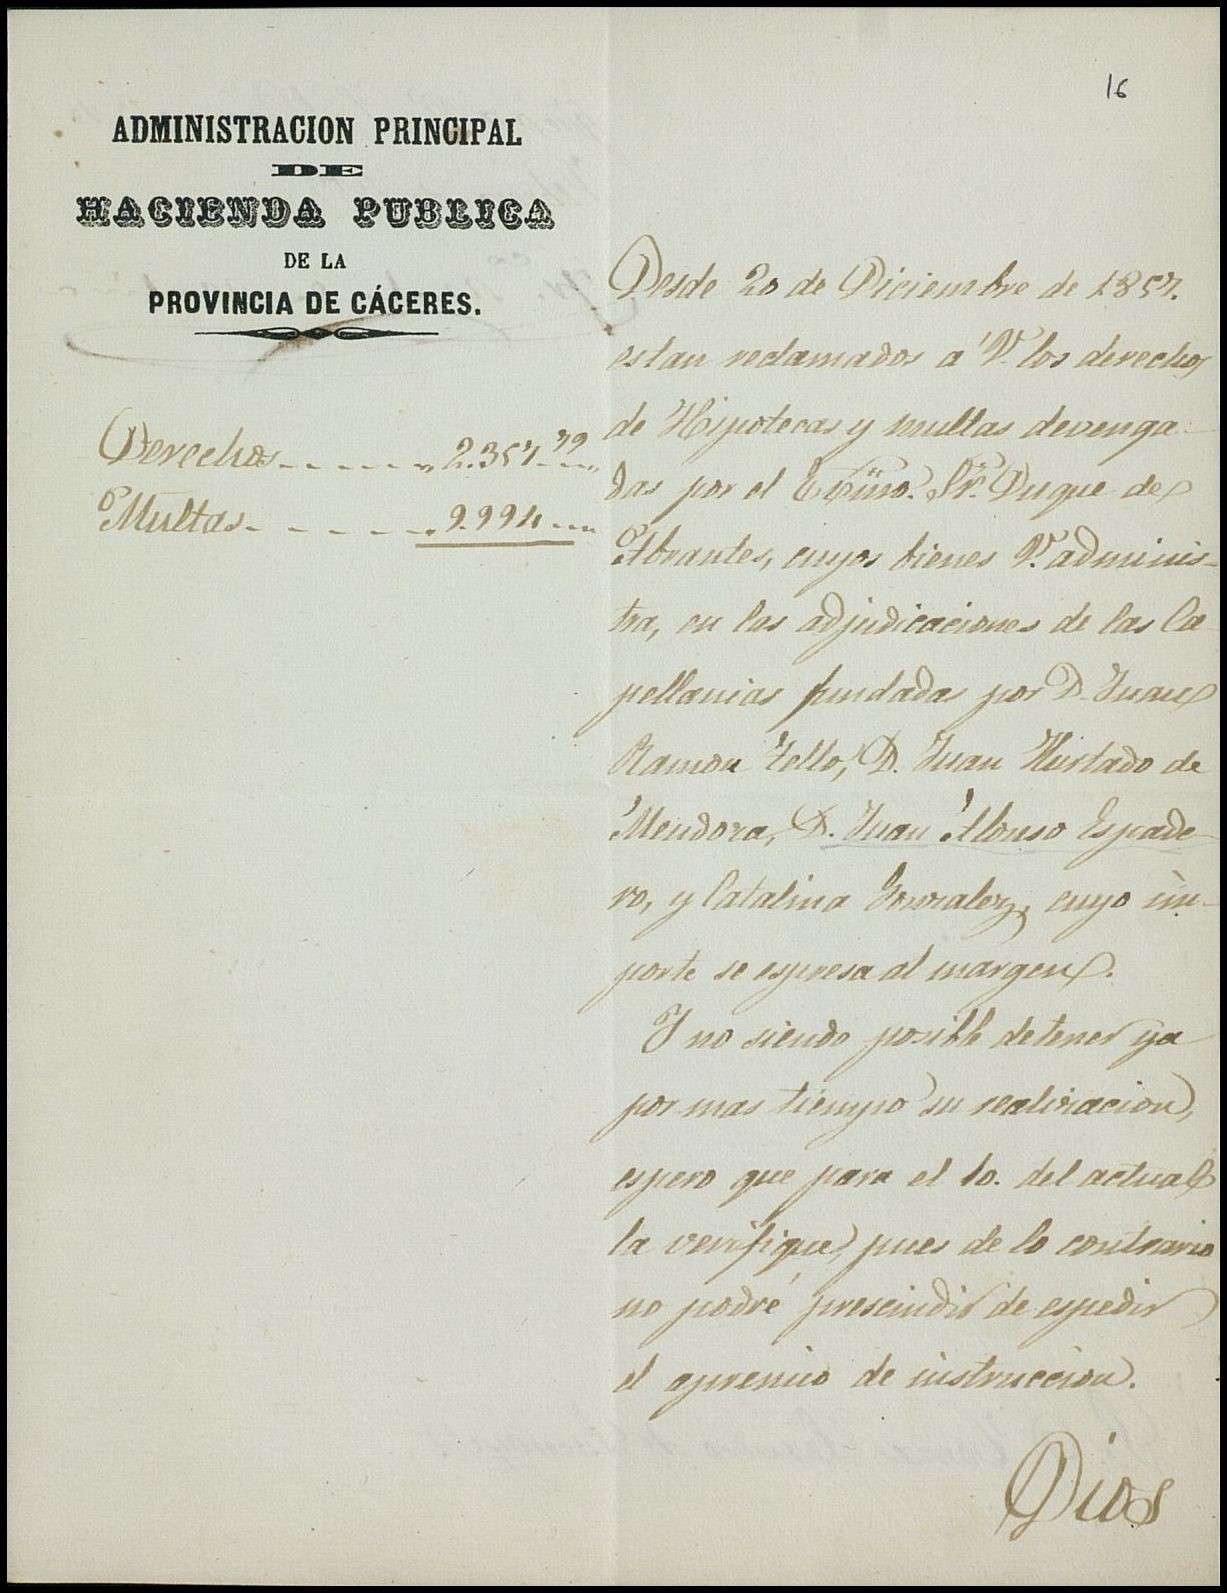 16
ADMINISTRACION PRINCIPAL
DE
HACIENDA PUBLICA
DE LA
PROVINCIA DE CÁCERES.
Derechos 2.357 79
Multas 9.994
Desde 20 de Diciembre de 1857.
estan reclamados a V. los derechos
de Hipotecas y multas devenga-
das por el Exmo. Sr. Duque de
Abrantes, cuyos bienes V. adminis-
tra, en las adjudicaciones de las Ca-
pellanias fundadas por D. Juan
Ramon Tello, D. Juan Hurtado de
Mendoza, D. Juan Alonso Espade-
ro, y Catalina Gonzalez, cuyo im-
porte se espresa al margen.
Y no siendo posible detener ya
por mas tiempo su realizacion,
espero que para el 10. del actual
la verifique, pues de lo contrario
no podré prescindir de espedir
el apremio de instruccion.
Dios